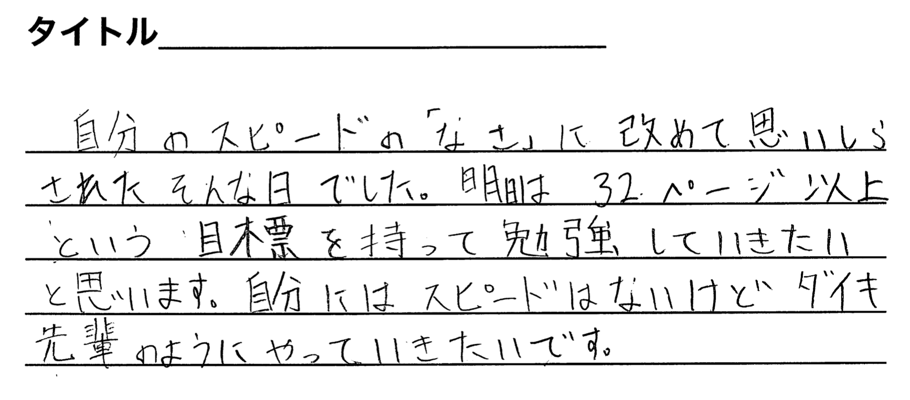 タイトル
自分のスピードの「なさ」に改めて思いしら
されたそんな日でした。明日は32ページ以上
という目標を持って勉強していきたい
と思います。自分にはスピードはないけどダイキ
先輩のようにやっていきたいです。